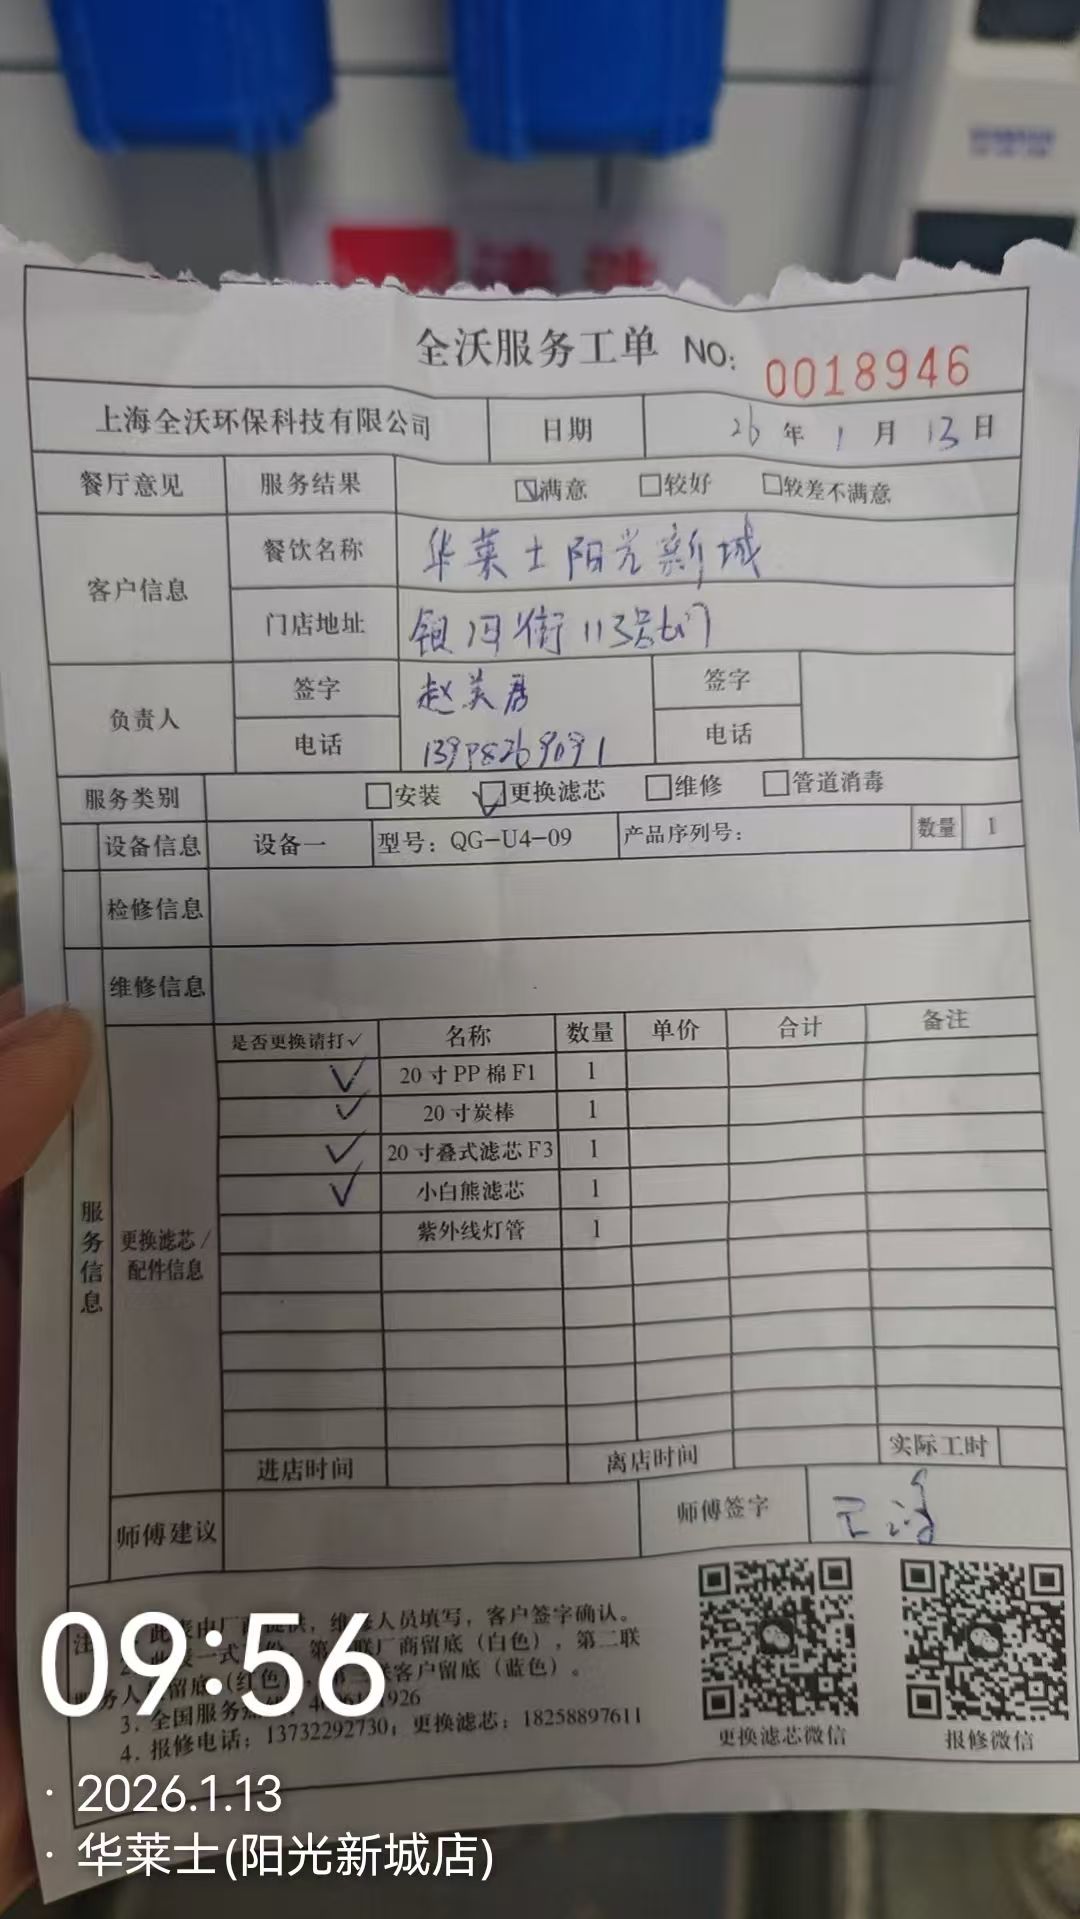 全沃服务工单 NO: 0018946
上海全沃环保科技有限公司 日期 26 年 1 月 13 日
餐厅意见 服务结果 满意 较好 较差不满意
客户信息 餐饮名称 华莱士阳光新城
门店地址 银河街113号七门
负责人 签字 赵美君 签字
电话 13998269091 电话
服务类别 安装 更换滤芯 维修 管道消毒
设备信息 设备一 型号: QG-U4-09 产品序列号: 数量 1
检修信息
维修信息
是否更换请打✓ 名称 数量 单价 合计 备注
✓ 20寸PP棉F1 1
✓ 20寸炭棒 1
✓ 20寸叠式滤芯F3 1
✓ 小白熊滤芯 1
紫外线灯管 1
服务信息
更换滤芯/
配件信息
进店时间 离店时间 实际工时
师傅建议 师傅签字
此表由厂商提供，维修人员填写，客户签字确认。
联厂商留底（白色），第二联
留底（红色），客户留底（蓝色）。
3. 全国服务 926
4. 报修电话：13732292730；更换滤芯：18258897611
更换滤芯微信 报修微信
09:56
· 2026.1.13
· 华莱士(阳光新城店)